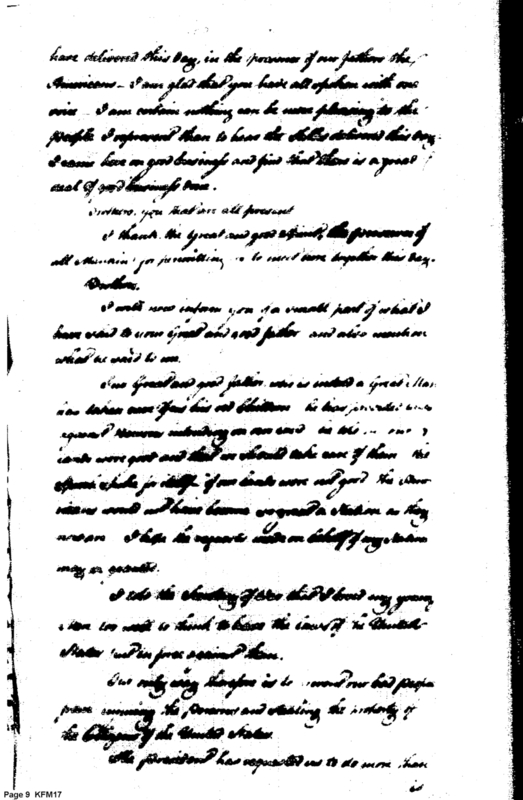 have delivered this day, in the presence of our fathers the
Americans - I am glad that you have all spoken with one
voice - I am certain nothing can be more pleasing to the
people I represent than to hear the Talks delivered this day
I came here on good business and find that there is a great
deal of good business done.
Brothers, you that are all present
I thank the Great and good Spirit, the preserver of
all Mankind for permitting us to meet here together this day.
Brothers.
I will now inform you of a small part of what I
have said to your Great and good father and also mention
what he said to me.
Our Great and good father who is indeed a Great Man
has taken care of us his red Children he has provided
against intruding on our land he told
lands were good and that we should take care of them His
for itself if our lands were not good the
would not have become so great a Nation as they
now are I hope the requests made on behalf of my Nation
may be granted.
I told the Secretary of War that I loved my young
Men too well to think to have the laws of the United
States put in force against them.
Our only way therefore is to our bad people
from the and stealing the property of
the Citizens of the United States.
The president has requested us to do more than
is
Page 9 KFM17